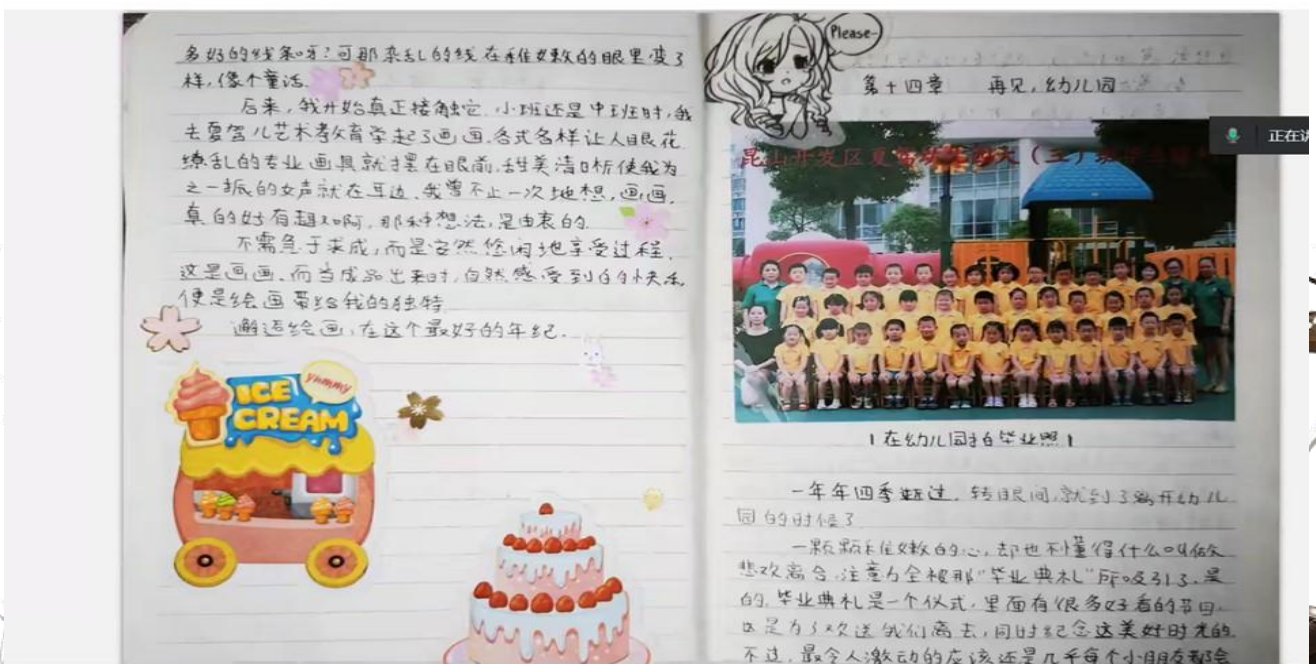 多好的线条呀?可那杂乱的线在稚嫩的眼里变了
样,像个童话.
后来,我开始真正接触它.小班还是中班时,我
去夏驾儿艺术教育学起了画画.各式各样让人眼花
缭乱的专业画具就摆在眼前,甜美清晰使我为
之一振的女声就在耳边.我曾不止一次地想,画画,
真的好有趣啊.那种想法,是由衷的.
不需急于求成,而是安然悠闲地享受过程.
这是画画.而当成品出来时,自然感受到的快乐
便是绘画带给我的独特.
邂逅绘画,在这个最好的年纪.
yummy
ICE
CREAM
Please~
第十四章 再见,幼儿园
正在
昆山开发区夏驾幼儿园大(三)班毕业留
在幼儿园拍毕业照
一年年四季越过.转眼间,就到了离开幼儿
园的时候了
一颗颗稚嫩的心,却也不懂得什么叫做
悲欢离合.注意力全被那"毕业典礼"所吸引了.是
的.毕业典礼是一个仪式,里面有很多好看的节目.
这是为了欢送我们离去,同时纪念这美好时光的
不过,最令人激动的应该还是几乎每个小朋友都会